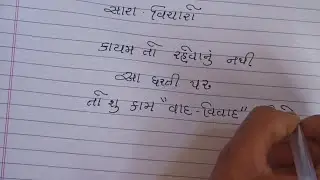 સારા વિચારો
કાયમ તો રહેવાનું નથી
આ ધરતી પર
તો શું કામ "વાદ-વિવાદ"